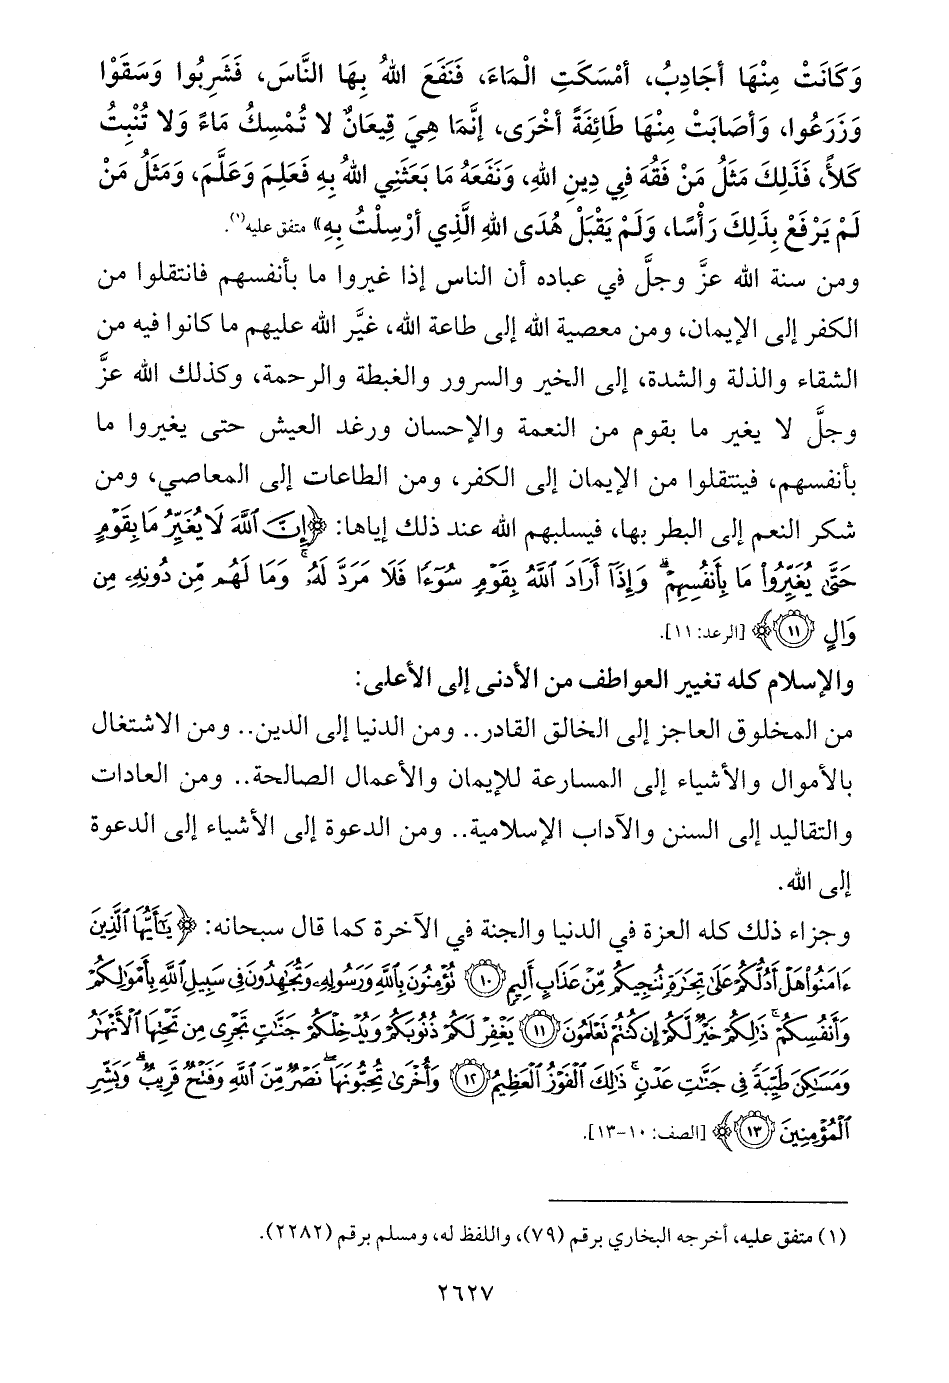 وَكَانَتْ مِنْهَا أجَادِبُ، أمْسَكَتِ الْمَاءَ، فَنَفَعَ اللهُ بِهَا النَّاسَ، فَشَرِبُوا وَسَقَوْا
وَزَرَعُوا، وَأصَابَتْ مِنْهَا طَائِفَةً أخْرَى، إنَّمَا هِيَ قِيعَانٌ لا تُمْسِكُ مَاءً وَلا تُنْبِتُ
كَلأً، فَذَلِكَ مَثَلُ مَنْ فَقُهَ فِي دِينِ اللهِ، وَنَفَعَهُ مَا بَعَثَنِي اللهُ بِهِ فَعَلِمَ وَعَلَّمَ، وَمَثَلُ مَنْ
لَمْ يَرْفَعْ بِذَلِكَ رَأْسًا، وَلَمْ يَقْبَلْ هُدَى اللهِ الَّذِي أرْسِلْتُ بِهِ» متفق عليه(١).
ومن سنة الله عزَّ وجلَّ في عباده أن الناس إذا غيروا ما بأنفسهم فانتقلوا من
الكفر إلى الإيمان، ومن معصية الله إلى طاعة الله، غيَّر الله عليهم ما كانوا فيه من
الشقاء والذلة والشدة، إلى الخير والسرور والغبطة والرحمة، وكذلك الله عزَّ
وجلَّ لا يغير ما بقوم من النعمة والإحسان ورغد العيش حتى يغيروا ما
بأنفسهم، فينتقلوا من الإيمان إلى الكفر، ومن الطاعات إلى المعاصي، ومن
شكر النعم إلى البطر بها، فيسلبهم الله عند ذلك إياها: ﴿إِنَّ ٱللَّهَ لَا يُغَيِّرُ مَا بِقَوْمٍ
حَتَّىٰ يُغَيِّرُوا۟ مَا بِأَنفُسِهِمْ ۗ وَإِذَآ أَرَادَ ٱللَّهُ بِقَوْمٍ سُوٓءًا فَلَا مَرَدَّ لَهُۥ ۚ وَمَا لَهُم مِّن دُونِهِۦ مِن
وَالٍ ۝١١﴾ [الرعد: ١١].
والإسلام كله تغيير العواطف من الأدنى إلى الأعلى:
من المخلوق العاجز إلى الخالق القادر.. ومن الدنيا إلى الدين.. ومن الاشتغال
بالأموال والأشياء إلى المسارعة للإيمان والأعمال الصالحة.. ومن العادات
والتقاليد إلى السنن والآداب الإسلامية.. ومن الدعوة إلى الأشياء إلى الدعوة
إلى الله.
وجزاء ذلك كله العزة في الدنيا والجنة في الآخرة كما قال سبحانه: ﴿يَـٰٓأَيُّهَا ٱلَّذِينَ
ءَامَنُوا۟ هَلْ أَدُلُّكُمْ عَلَىٰ تِجَـٰرَةٍ تُنجِيكُم مِّنْ عَذَابٍ أَلِيمٍ ۝١٠ تُؤْمِنُونَ بِٱللَّهِ وَرَسُولِهِۦ وَتُجَـٰهِدُونَ فِى سَبِيلِ ٱللَّهِ بِأَمْوَٰلِكُمْ
وَأَنفُسِكُمْ ۚ ذَٰلِكُمْ خَيْرٌ لَّكُمْ إِن كُنتُمْ تَعْلَمُونَ ۝١١ يَغْفِرْ لَكُمْ ذُنُوبَكُمْ وَيُدْخِلْكُمْ جَنَّـٰتٍ تَجْرِى مِن تَحْتِهَا ٱلْأَنْهَـٰرُ
وَمَسَـٰكِنَ طَيِّبَةً فِى جَنَّـٰتِ عَدْنٍ ۚ ذَٰلِكَ ٱلْفَوْزُ ٱلْعَظِيمُ ۝١٢ وَأُخْرَىٰ تُحِبُّونَهَا ۖ نَصْرٌ مِّنَ ٱللَّهِ وَفَتْحٌ قَرِيبٌ ۗ وَبَشِّرِ
ٱلْمُؤْمِنِينَ ۝١٣﴾ [الصف: ١٠-١٣].
(١) متفق عليه، أخرجه البخاري برقم (٧٩)، واللفظ له، ومسلم برقم (٢٢٨٢).
٢٦٢٧